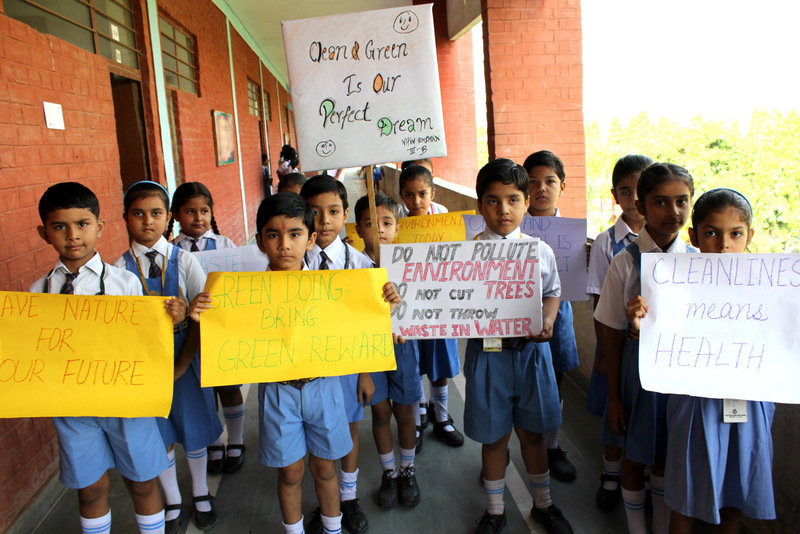 Clean & Green
Is Our
Perfect
Dream
III-B
AVE NATURE
FOR
OUR FUTURE
GREEN DOING
BRING
GREEN REWARD
ENVIRONMENT
TODAY
DO NOT POLLUTE
ENVIRONMENT
DO NOT CUT TREES
DO NOT THROW
WASTE IN WATER
IS
CLEANLINES
means
HEALTH